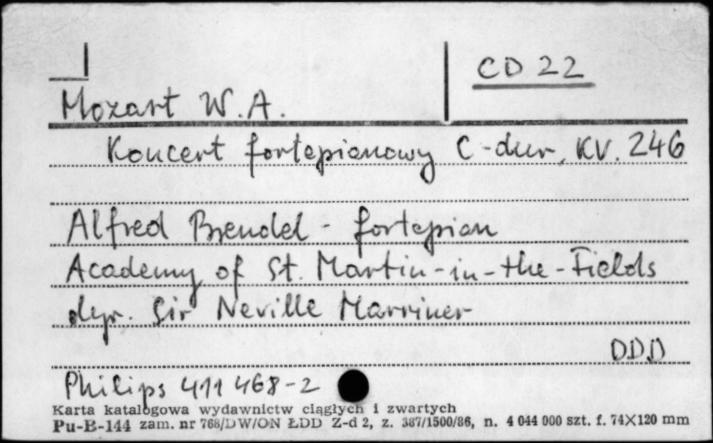 CD 22
Mozart W. A.
Koncert fortepianowy C-dur, KV. 246
Alfred Brendel - fortepian
Academy of St. Martin-in-the-Fields
dyr. Sir Neville Marriner
DDD
Philips 411 468-2
Karta katalogowa wydawnictw ciągłych i zwartych
Pu-B-144 zam. nr 768/DW/ON ŁDD Z-d 2, z. 387/1500/86, n. 4 044 000 szt. f. 74X120 mm